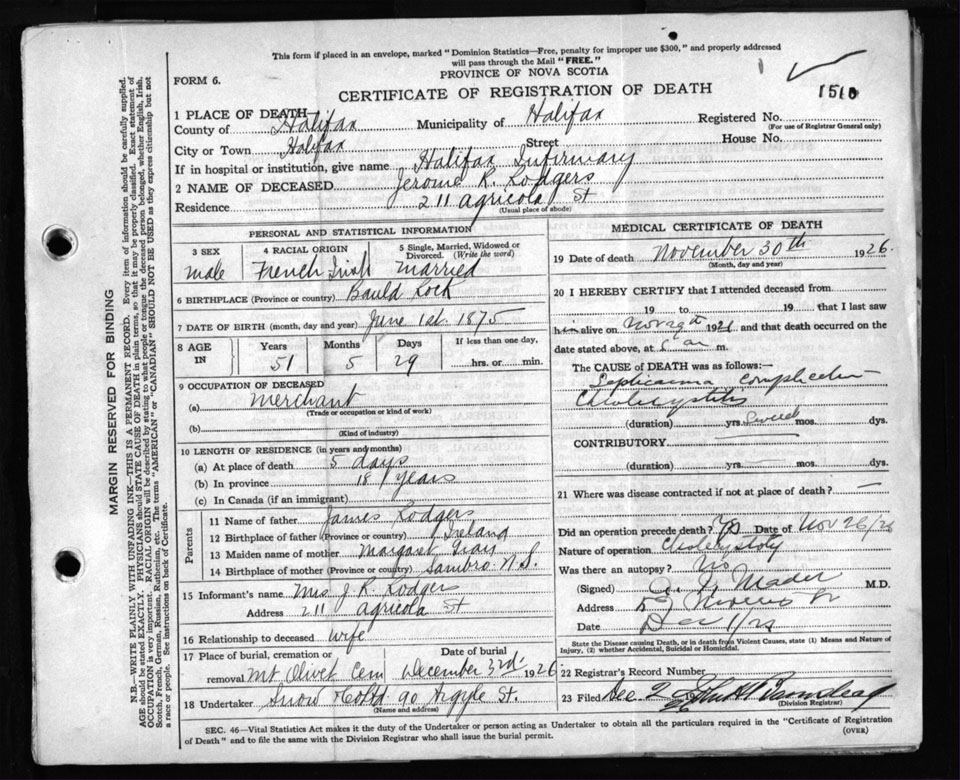 This form if placed in an envelope, marked "Dominion Statistics—Free, penalty for improper use $300," and properly addressed
will pass through the Mail "FREE."
PROVINCE OF NOVA SCOTIA
FORM 6.
CERTIFICATE OF REGISTRATION OF DEATH
1510
1 PLACE OF DEATH
County of Halifax Municipality of Halifax Registered No.
(For use of Registrar General only)
City or Town Halifax Street House No.
If in hospital or institution, give name Halifax Infirmary
2 NAME OF DECEASED Jerome R. Rodgers
Residence 211 Agricola St
(Usual place of abode)
PERSONAL AND STATISTICAL INFORMATION
3 SEX 4 RACIAL ORIGIN 5 Single, Married, Widowed or Divorced. (Write the word)
Male French Irish Married
6 BIRTHPLACE (Province or country) Bauld Rock
7 DATE OF BIRTH (month, day and year) June 1st 1875
8 AGE IN Years Months Days If less than one day,
51 5 29 hrs. or min.
9 OCCUPATION OF DECEASED
(a) Merchant
(Trade or occupation or kind of work)
(b)
(Kind of industry)
10 LENGTH OF RESIDENCE (in years and months)
(a) At place of death 5 days
(b) In province 18 years
(c) In Canada (if an immigrant)
Parents
11 Name of father James Rodgers
12 Birthplace of father (Province or country) Ireland
13 Maiden name of mother Margaret
14 Birthplace of mother (Province or country) Sambro N.S.
15 Informant's name Mrs J. R. Rodgers
Address 211 Agricola St
16 Relationship to deceased wife
17 Place of burial, cremation or removal Date of burial
Mt Olivet Cem December 3rd 1926
18 Undertaker Snow & Co Ltd 90 Argyle St.
(Name and address)
MEDICAL CERTIFICATE OF DEATH
19 Date of death November 30th 1926.
(Month, day and year)
20 I HEREBY CERTIFY that I attended deceased from
19 to 19 that I last saw
him alive on Nov 29th 1926 and that death occurred on
date stated above, at am m.
The CAUSE OF DEATH was as follows:—
Septicaemia complication
Cholecystitis
(duration) yrs. mos. dys.
CONTRIBUTORY
(duration) yrs. mos. dys.
21 Where was disease contracted if not at place of death? —
Did an operation precede death? yes Date of Nov 26/26
Nature of operation
Was there an autopsy? No
(Signed) Mader M.D.
Address
Date Dec 1
State the Disease causing Death, or in death from Violent Causes, state (1) Means and Nature of
Injury, (2) whether Accidental, Suicidal or Homicidal.
22 Registrar's Record Number
23 Filed Dec 2
(Division Registrar)
SEC. 46—Vital Statistics Act makes it the duty of the Undertaker or person acting as Undertaker to obtain all the particulars required in the "Certificate of Registration
of Death" and to file the same with the Division Registrar who shall issue the burial permit.
(OVER)
MARGIN RESERVED FOR BINDING
N.B.—WRITE PLAINLY WITH UNFADING INK—THIS IS A PERMANENT RECORD. Every item of information should be carefully supplied.
AGE should be stated EXACTLY. PHYSICIANS should STATE CAUSE OF DEATH in plain terms, so that it may be properly classified. Exact statement of
OCCUPATION is very important. RACIAL ORIGIN will be described by stating to what people or tongue the deceased person belonged, whether English, Irish,
Scotch, French, German, Russian, Ruthenian, etc. The terms "AMERICAN" or "CANADIAN" SHOULD NOT BE USED as they express citizenship but not
a race or people. See instructions on back of Certificate.